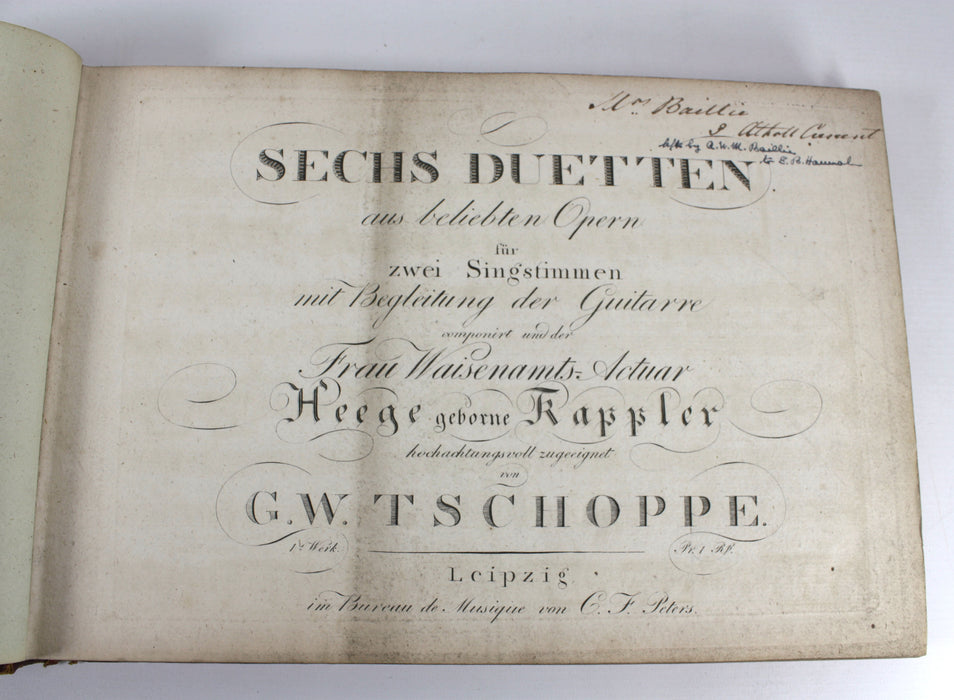 Mrs. Baillie
2 Atholl Crescent
left by A. W. M. Baillie
to E. R. Hannah
SECHS DUETTEN.
aus beliebten Opern
für
zwei Singstimmen
mit Begleitung der Guitarre
componirt und der
Frau Waisenamts-Actuar
Heege geborne Kappler
hochachtungsvoll zugeeignet
von
G. W. TSCHOPPE.
1s Werk. Pr. 1 Rf.
Leipzig
im Bureau de Musique von C. F. Peters.